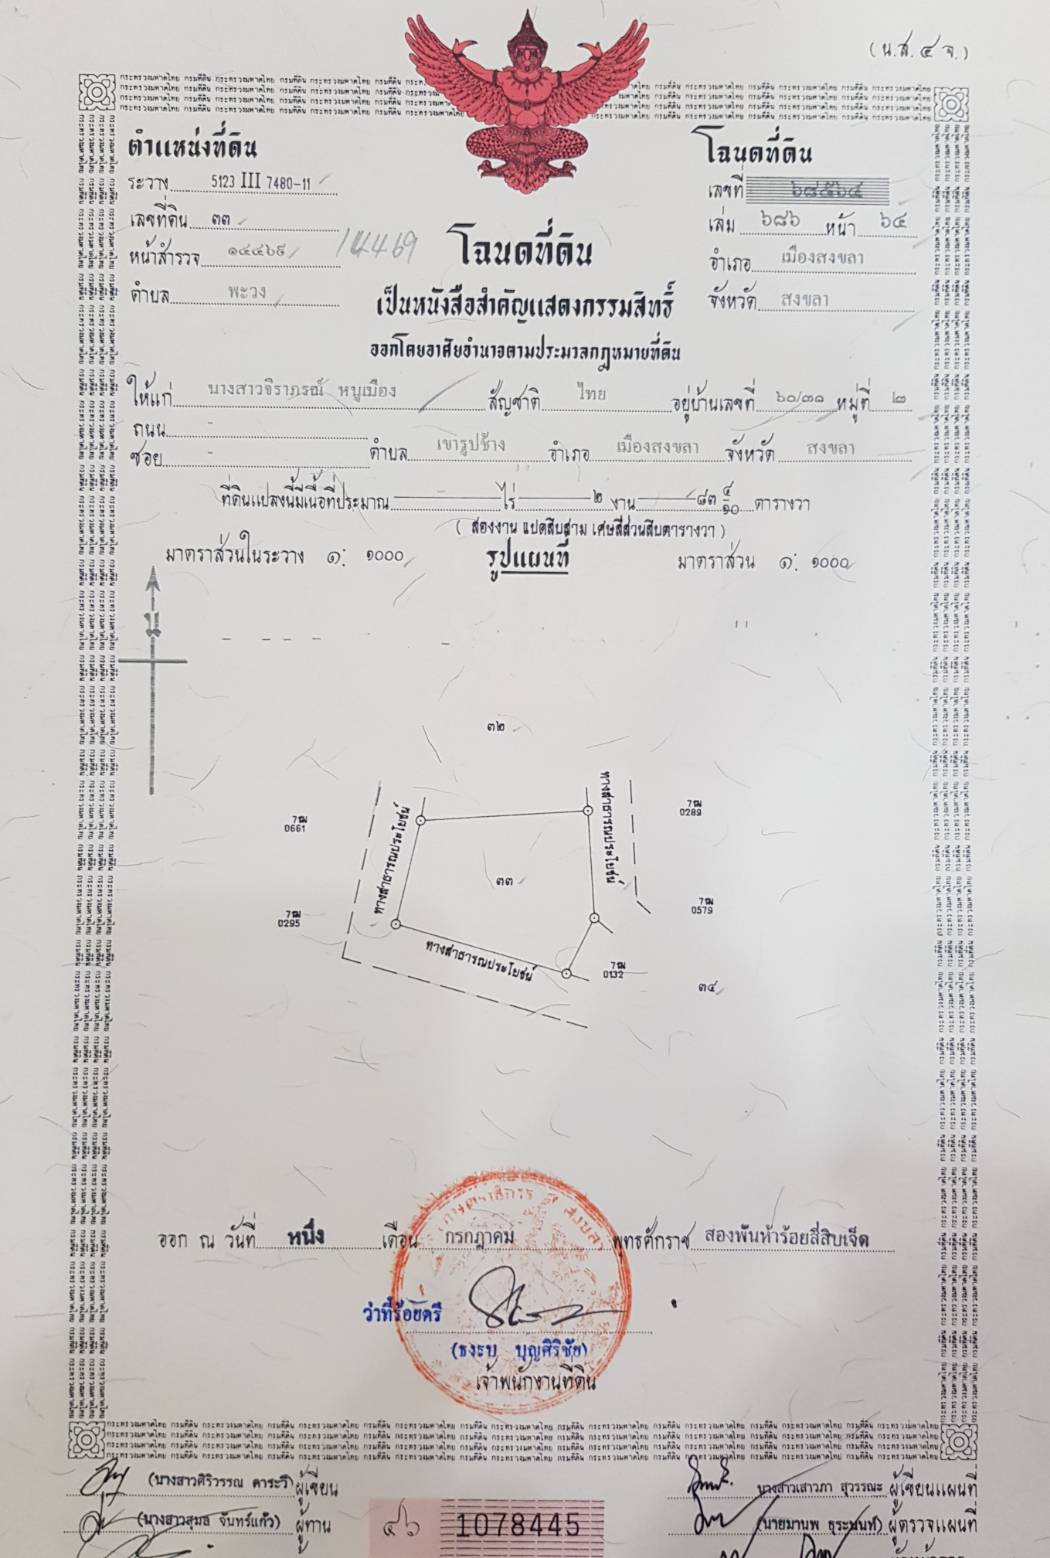 (น.ส. ๔ จ.)
ตำแหน่งที่ดิน
ระวาง 5123 III 7480-11
เลขที่ดิน ๓๓
หน้าสำรวจ ๑๔๔๖๙ 14469
ตำบล พะวง
โฉนดที่ดิน
เลขที่ ๖๘๕๖๔
เล่ม ๖๘๖ หน้า ๖๔
อำเภอ เมืองสงขลา
จังหวัด สงขลา
โฉนดที่ดิน
เป็นหนังสือสำคัญแสดงกรรมสิทธิ์
ออกโดยอาศัยอำนาจตามประมวลกฎหมายที่ดิน
ให้แก่ นางสาวจิราภรณ์ หนูเมือง สัญชาติ ไทย อยู่บ้านเลขที่ ๖๐/๓๑ หมู่ที่ ๒
ถนน -
ซอย - ตำบล เขารูปช้าง อำเภอ เมืองสงขลา จังหวัด สงขลา
ที่ดินแปลงนี้มีเนื้อที่ประมาณ - ไร่ ๒ งาน ๘๓ ๔/๑๐ ตารางวา
( สองงาน แปดสิบสาม เศษสี่ส่วนสิบตารางวา )
มาตราส่วนในระวาง ๑: ๑๐๐๐ รูปแผนที่ มาตราส่วน ๑: ๑๐๐๐
น
๓๒
7ฒ
0661
ทางสาธารณประโยชน์
ทางสาธารณประโยชน์
7ฒ
0289
๓๓
7ฒ
0295
7ฒ
0579
ทางสาธารณประโยชน์
7ฒ
0132
๓๔
ออก ณ วันที่ หนึ่ง เดือน กรกฎาคม พุทธศักราช สองพันห้าร้อยสี่สิบเจ็ด
ว่าที่ร้อยตรี
บุญศิริชัย)
เจ้าพนักงานที่ดิน
(นางสาวศิริวรรณ คาระวี) ผู้เขียน
นางสาวเสาวภา สุวรรณะ ผู้เขียนแผนที่
(นางสาวสุมล จันทร์แก้ว) ผู้ทาน
๔๖ 1078445
(นายมานพ ธุระนนท์) ผู้ตรวจแผนที่